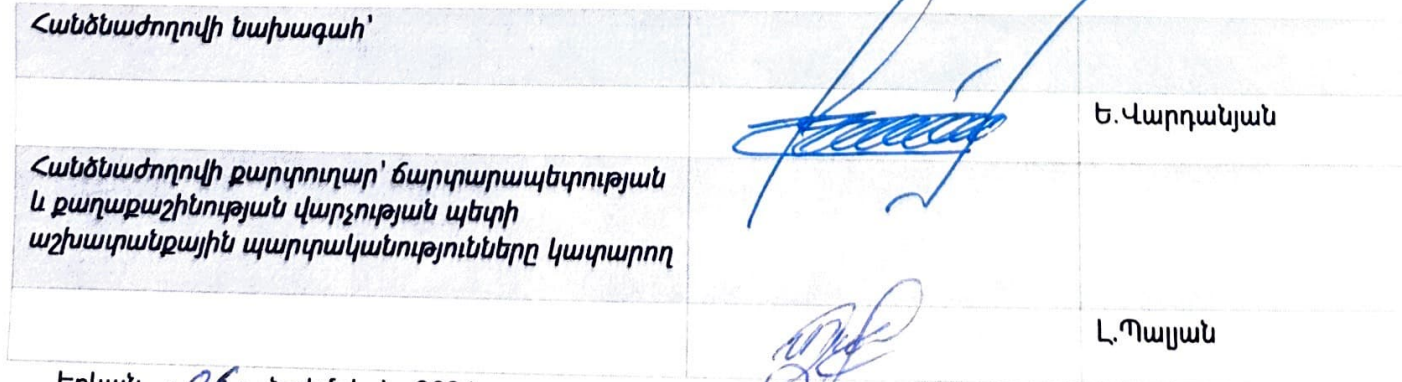 Հանձնաժողովի նախագահ՝
Ե.Վարդանյան
Հանձնաժողովի քարտուղար՝ ճարտարապետության
և քաղաքաշինության վարչության պետի
աշխատանքային պարտականությունները կատարող
Լ.Պալյան